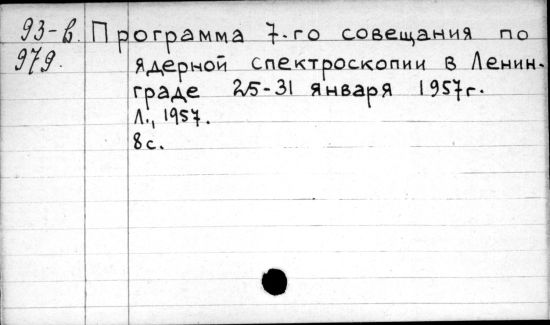 93-в
979.
Программа 7-го совещания по
ядерной спектроскопии в Ленин-
граде 25-31 января 1957г.
Л., 1957.
8с.